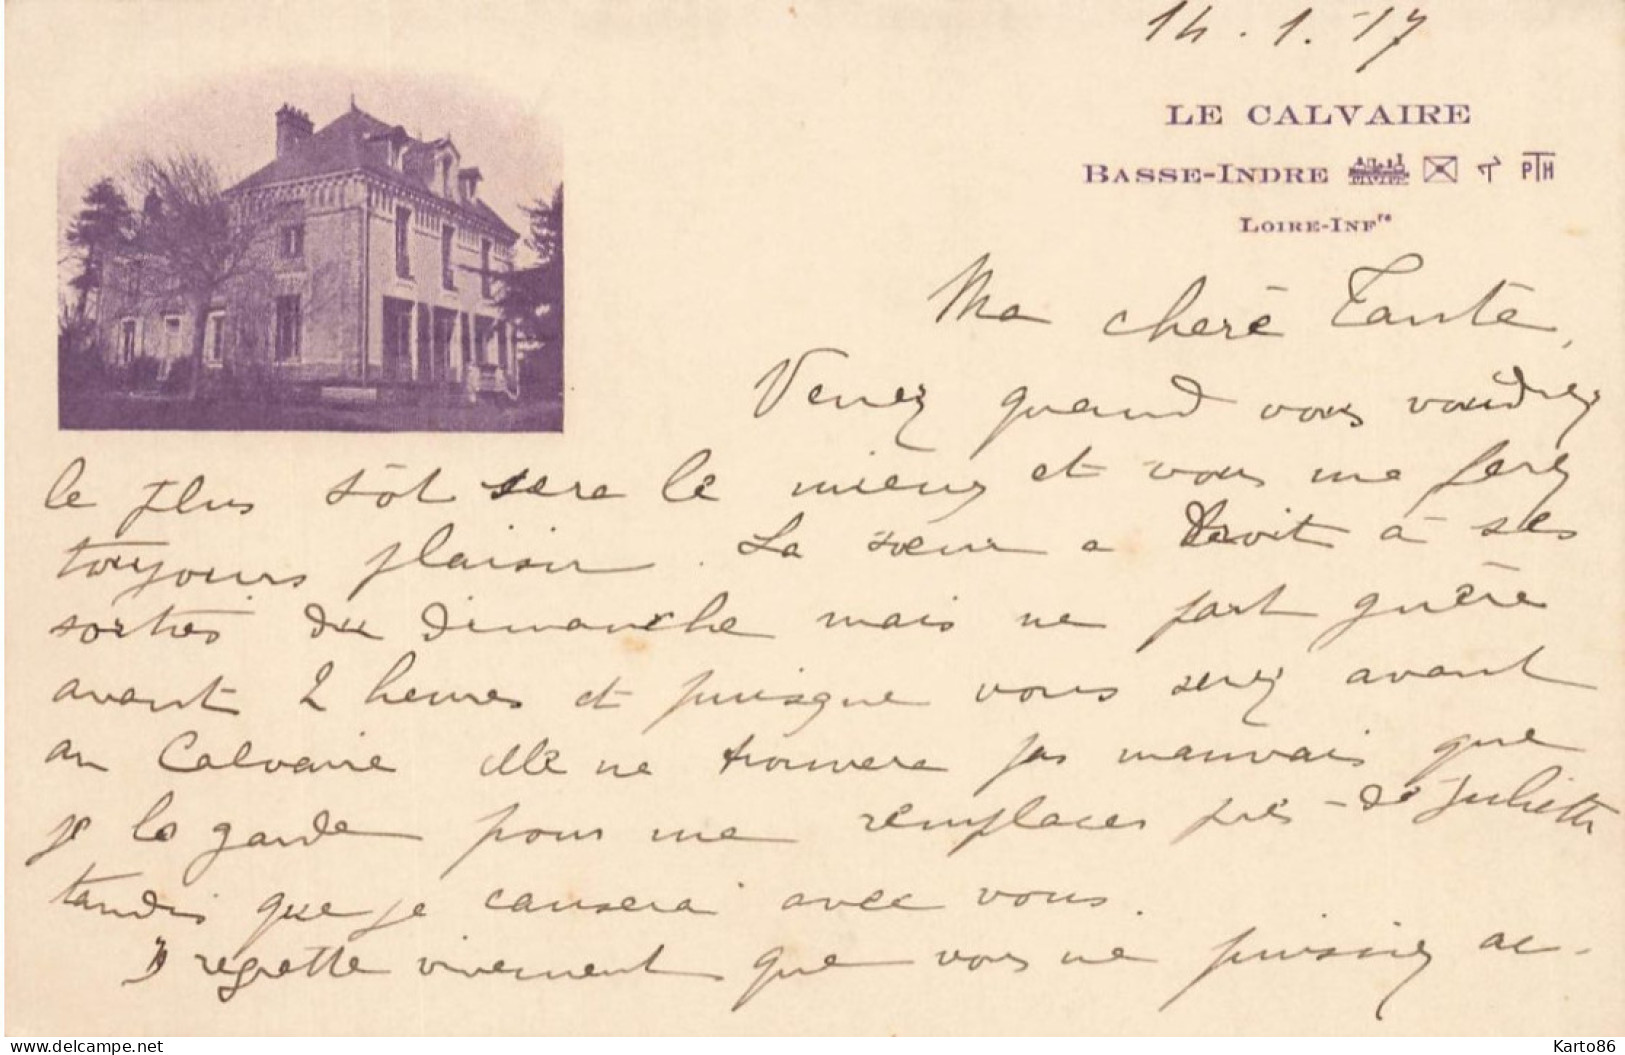 14.1.17
LE CALVAIRE
BASSE-INDRE PTH
LOIRE-INFre
Ma chère Tante,
Venez quand vous voudrez
le plus tôt sera le mieux et vous me ferez
toujours plaisir. La sœur a droit à ses
sorties du dimanche mais ne part guère
avant 2 heures et puisque vous serez avant
au Calvaire elle ne trouvera pas mauvais que
je la garde pour me remplacer près de Juliette
tandis que je causerai avec vous.
Je regrette vivement que vous ne puissiez ac-
www.delcampe.net
Karto86